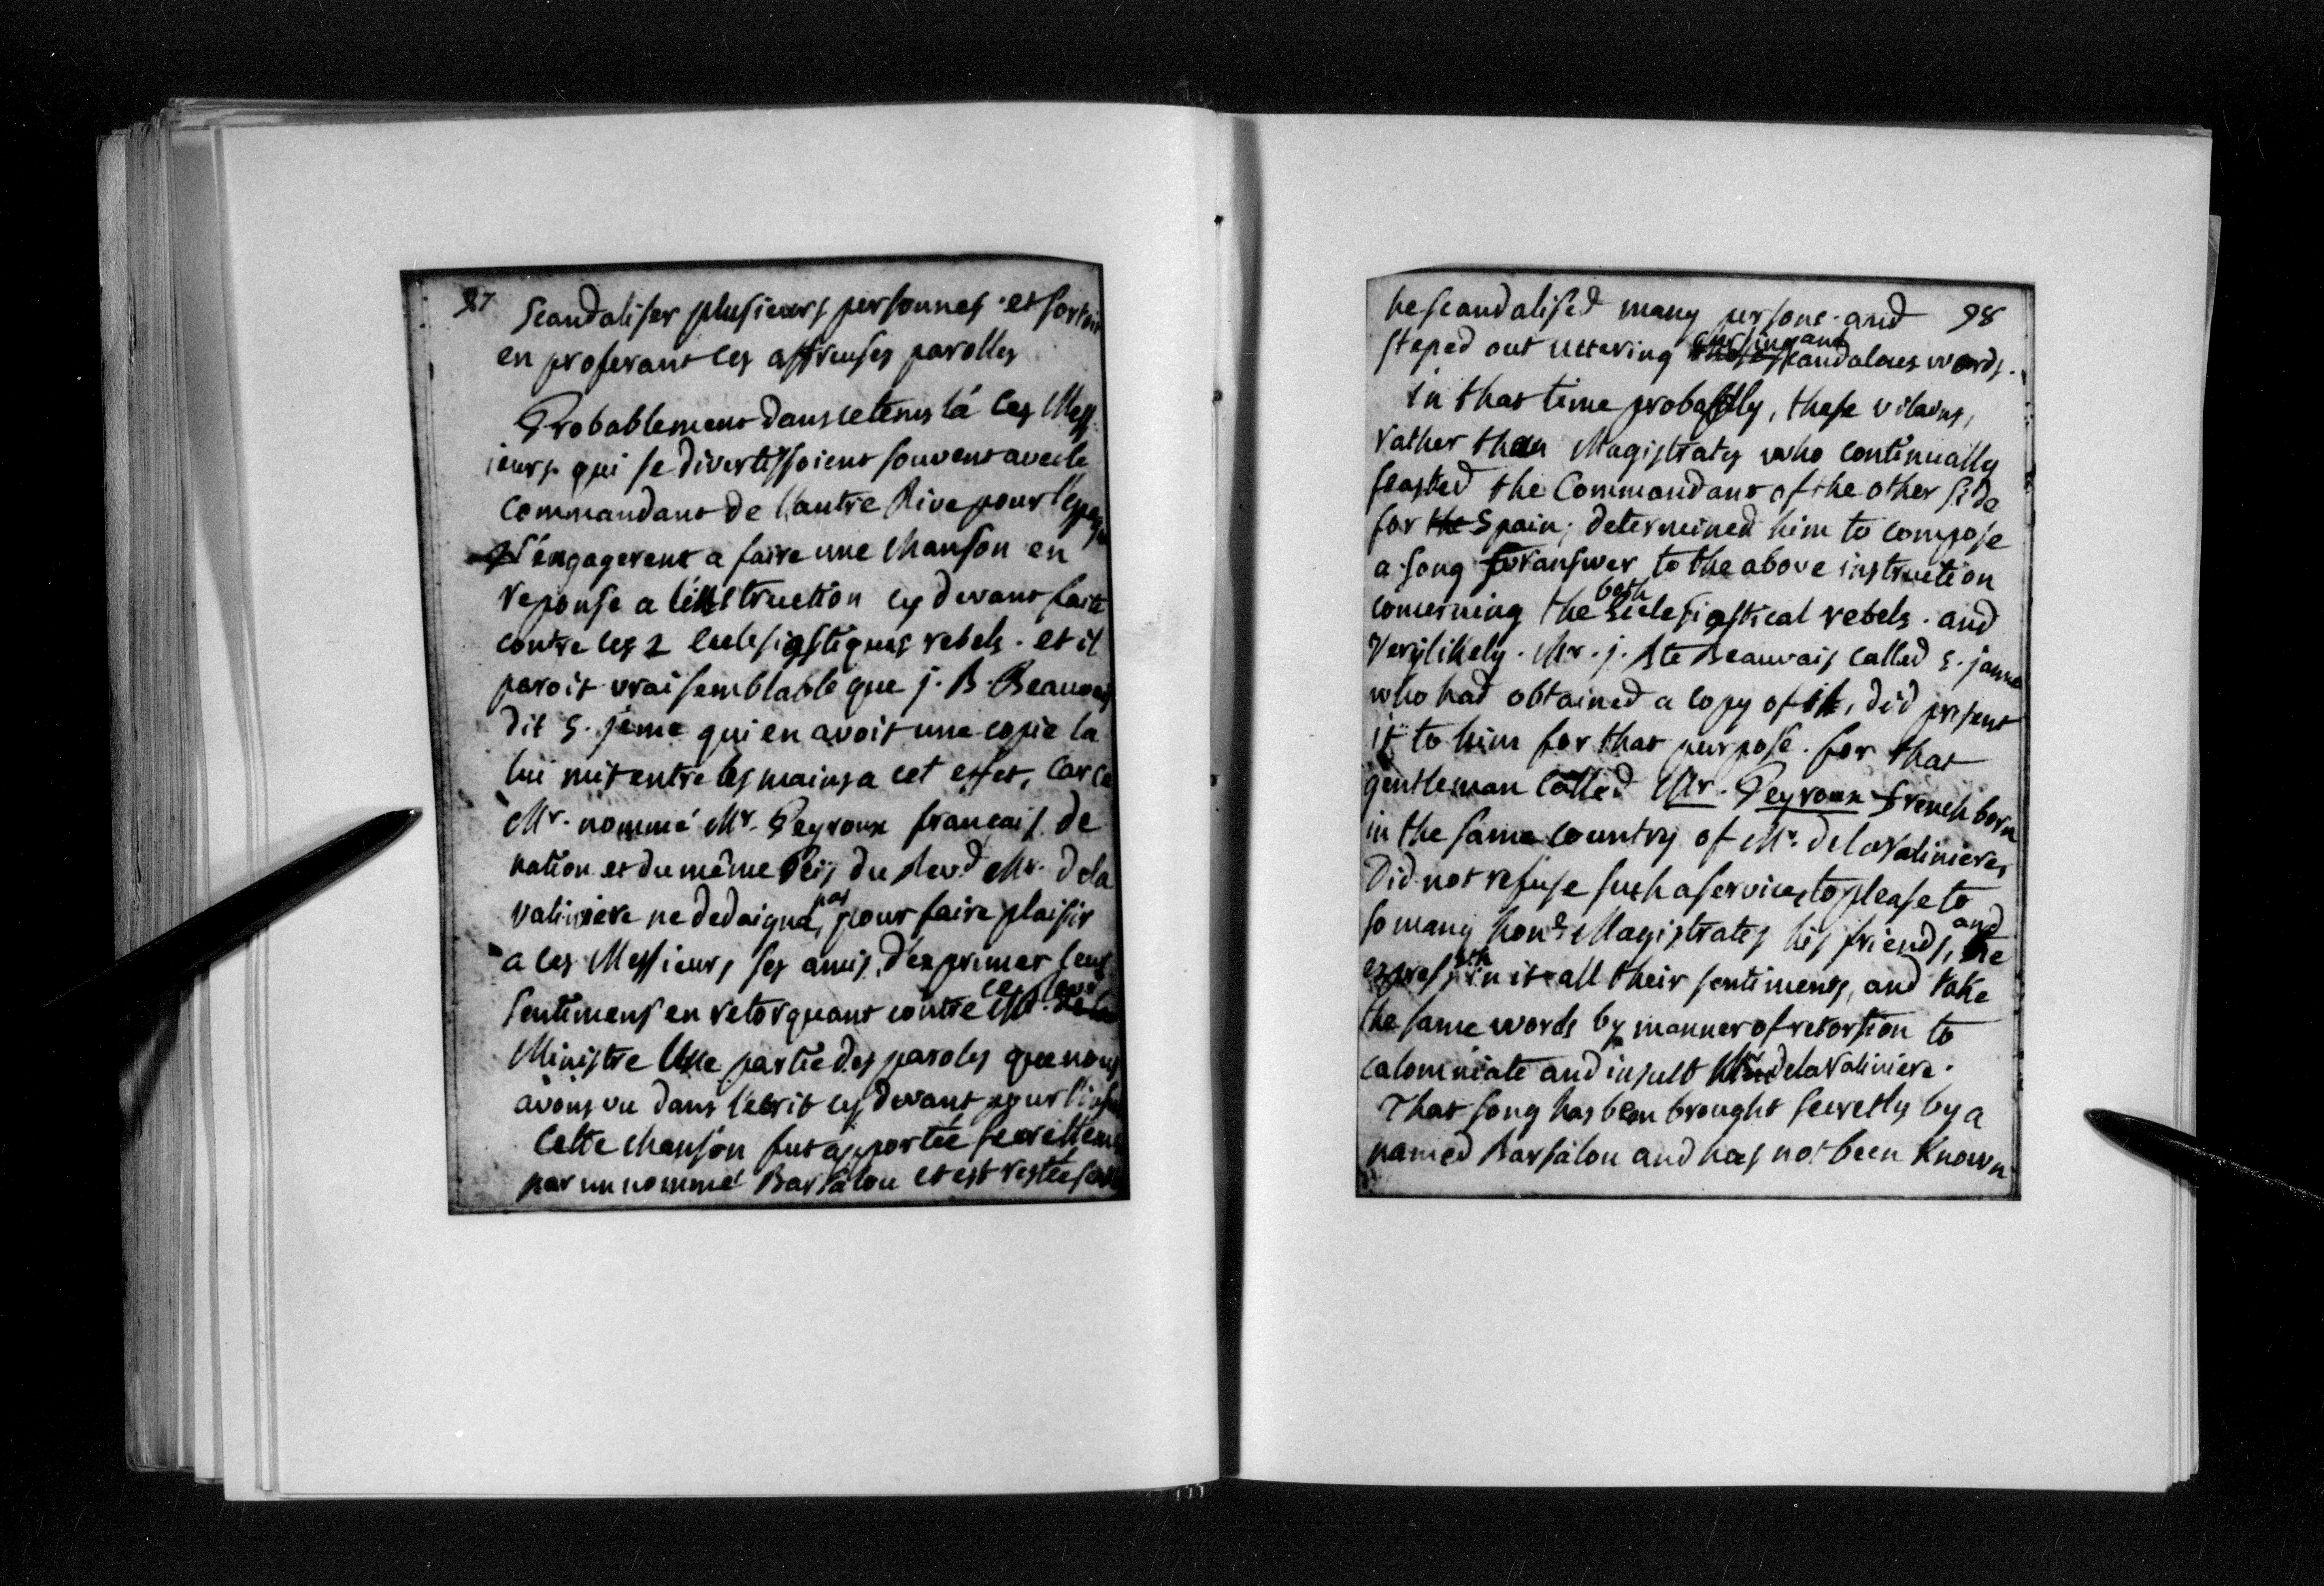 97
Scandaliser plusieurs personnes. et sortoit
en proferant ces affreuses parolles
Probablement dans ce tems lá ces Mess
ieurs qui se divertissoient souvent avec le
Commandant de l'autre Rive pour l'espagne
s'engagerent a faire une chanson en
reponse a l'instruction cy devant faite
contre les 2 Eclesiastiques rebels. et il
paroit vraisemblable que j. B. Beauvais
dit S. jeme qui en avoit une copie la
lui mit entre les mains a cet effet, Car ce
Mr. nommé Mr. Peyroux francais de
nation et du même Peïs du Revd. Mr. de la
valiniere ne dedaigna pas, pour faire plaisir
a ces Messieurs ses amis, d'exprimer leur
sentimens en retorquant contre ce
Ministre Une partie des paroles que nous
avons vu dans l'ecrit cy devant pour
Cette chanson fut apportée secrettement
par un nommé Barsalou et est restée
98
he scandalised many persons. and
steped out uttering cursing and scandalous words.
in that time probably, these vilains,
rather than Magistrates who continually
feasted the Commandant of the other side
for the Spain; determined him to compose
a song for answer to the above instruction
concerning the both Eclesiastical rebels. and
Very likely. Mr. j. Bte Beauvais called S. jamme
who had obtained a copy of it, did present
it to him for that purpose. for that
gentleman called Mr. Peyroux french born
in the same country of Mr. de la Valiniere,
Did not refuse such a service, to please to
so many hond. Magistrates his friends, and
express in it all their sentiments, and take
the same words by manner of retortion to
calomniate and insult Mr. de la Valiniere.
That song has been brought secretly by a
named Barsalou and has not been Known